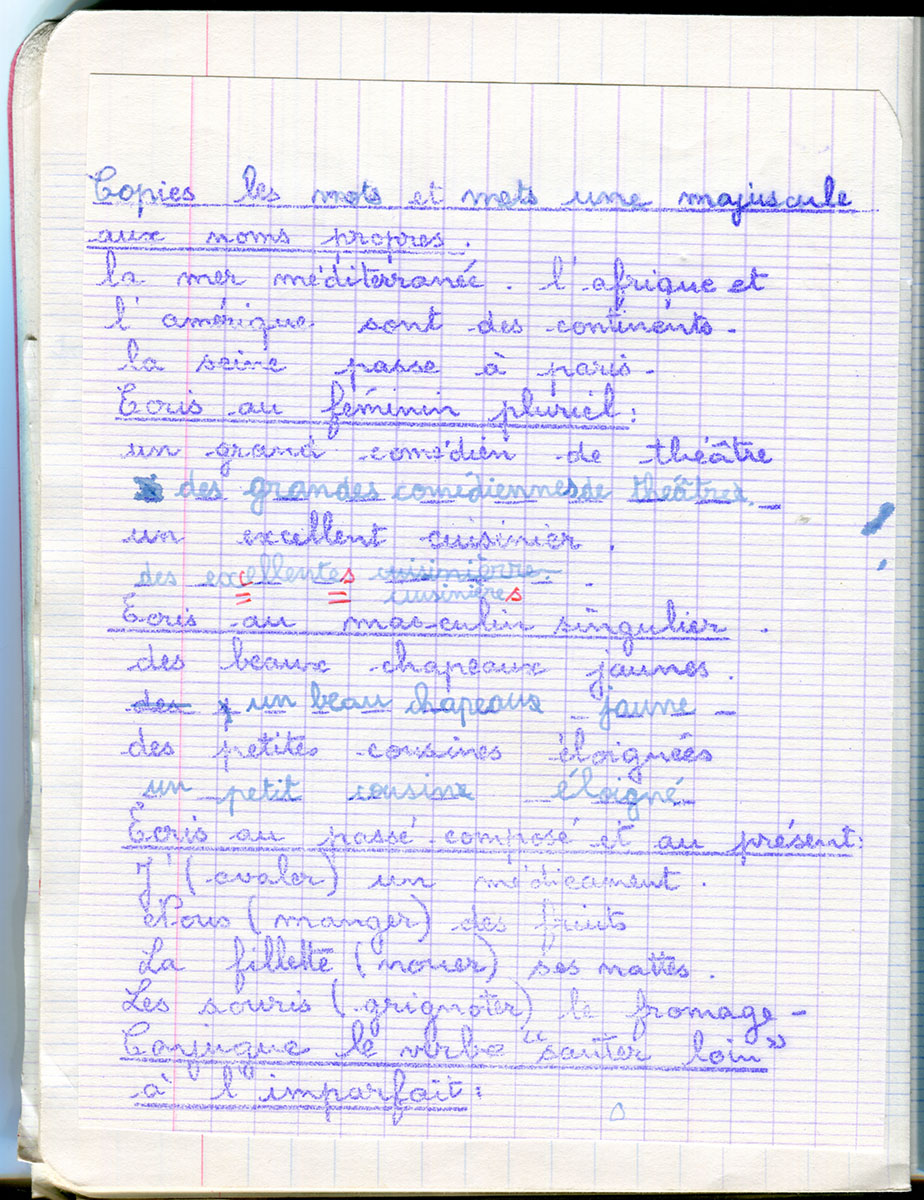 Copies les mots et mets une majuscule
aux noms propres.
la mer méditerranée. l'afrique et
l'amérique sont des continents.
la seine passe à paris.
Ecris au féminin pluriel:
un grand comédien de théâtre
des grandes comédiennes de théâtres.
un excellent cuisinier.
des excellentes cuisinièrre
cuisinières
Ecris au masculin singulier.
des beaux chapeaux jaunes.
des un beau chapeaux jaune
des petites cousines éloignées
un petit cousine éloigné
Ecris au passé composé et au présent:
J'(avaler) un médicament.
Nous (manger) des fruits
La fillette (nouer) ses nattes.
Les souris (grignoter) le fromage-
Conjugue le verbe "sauter loin"
à l'imparfait: